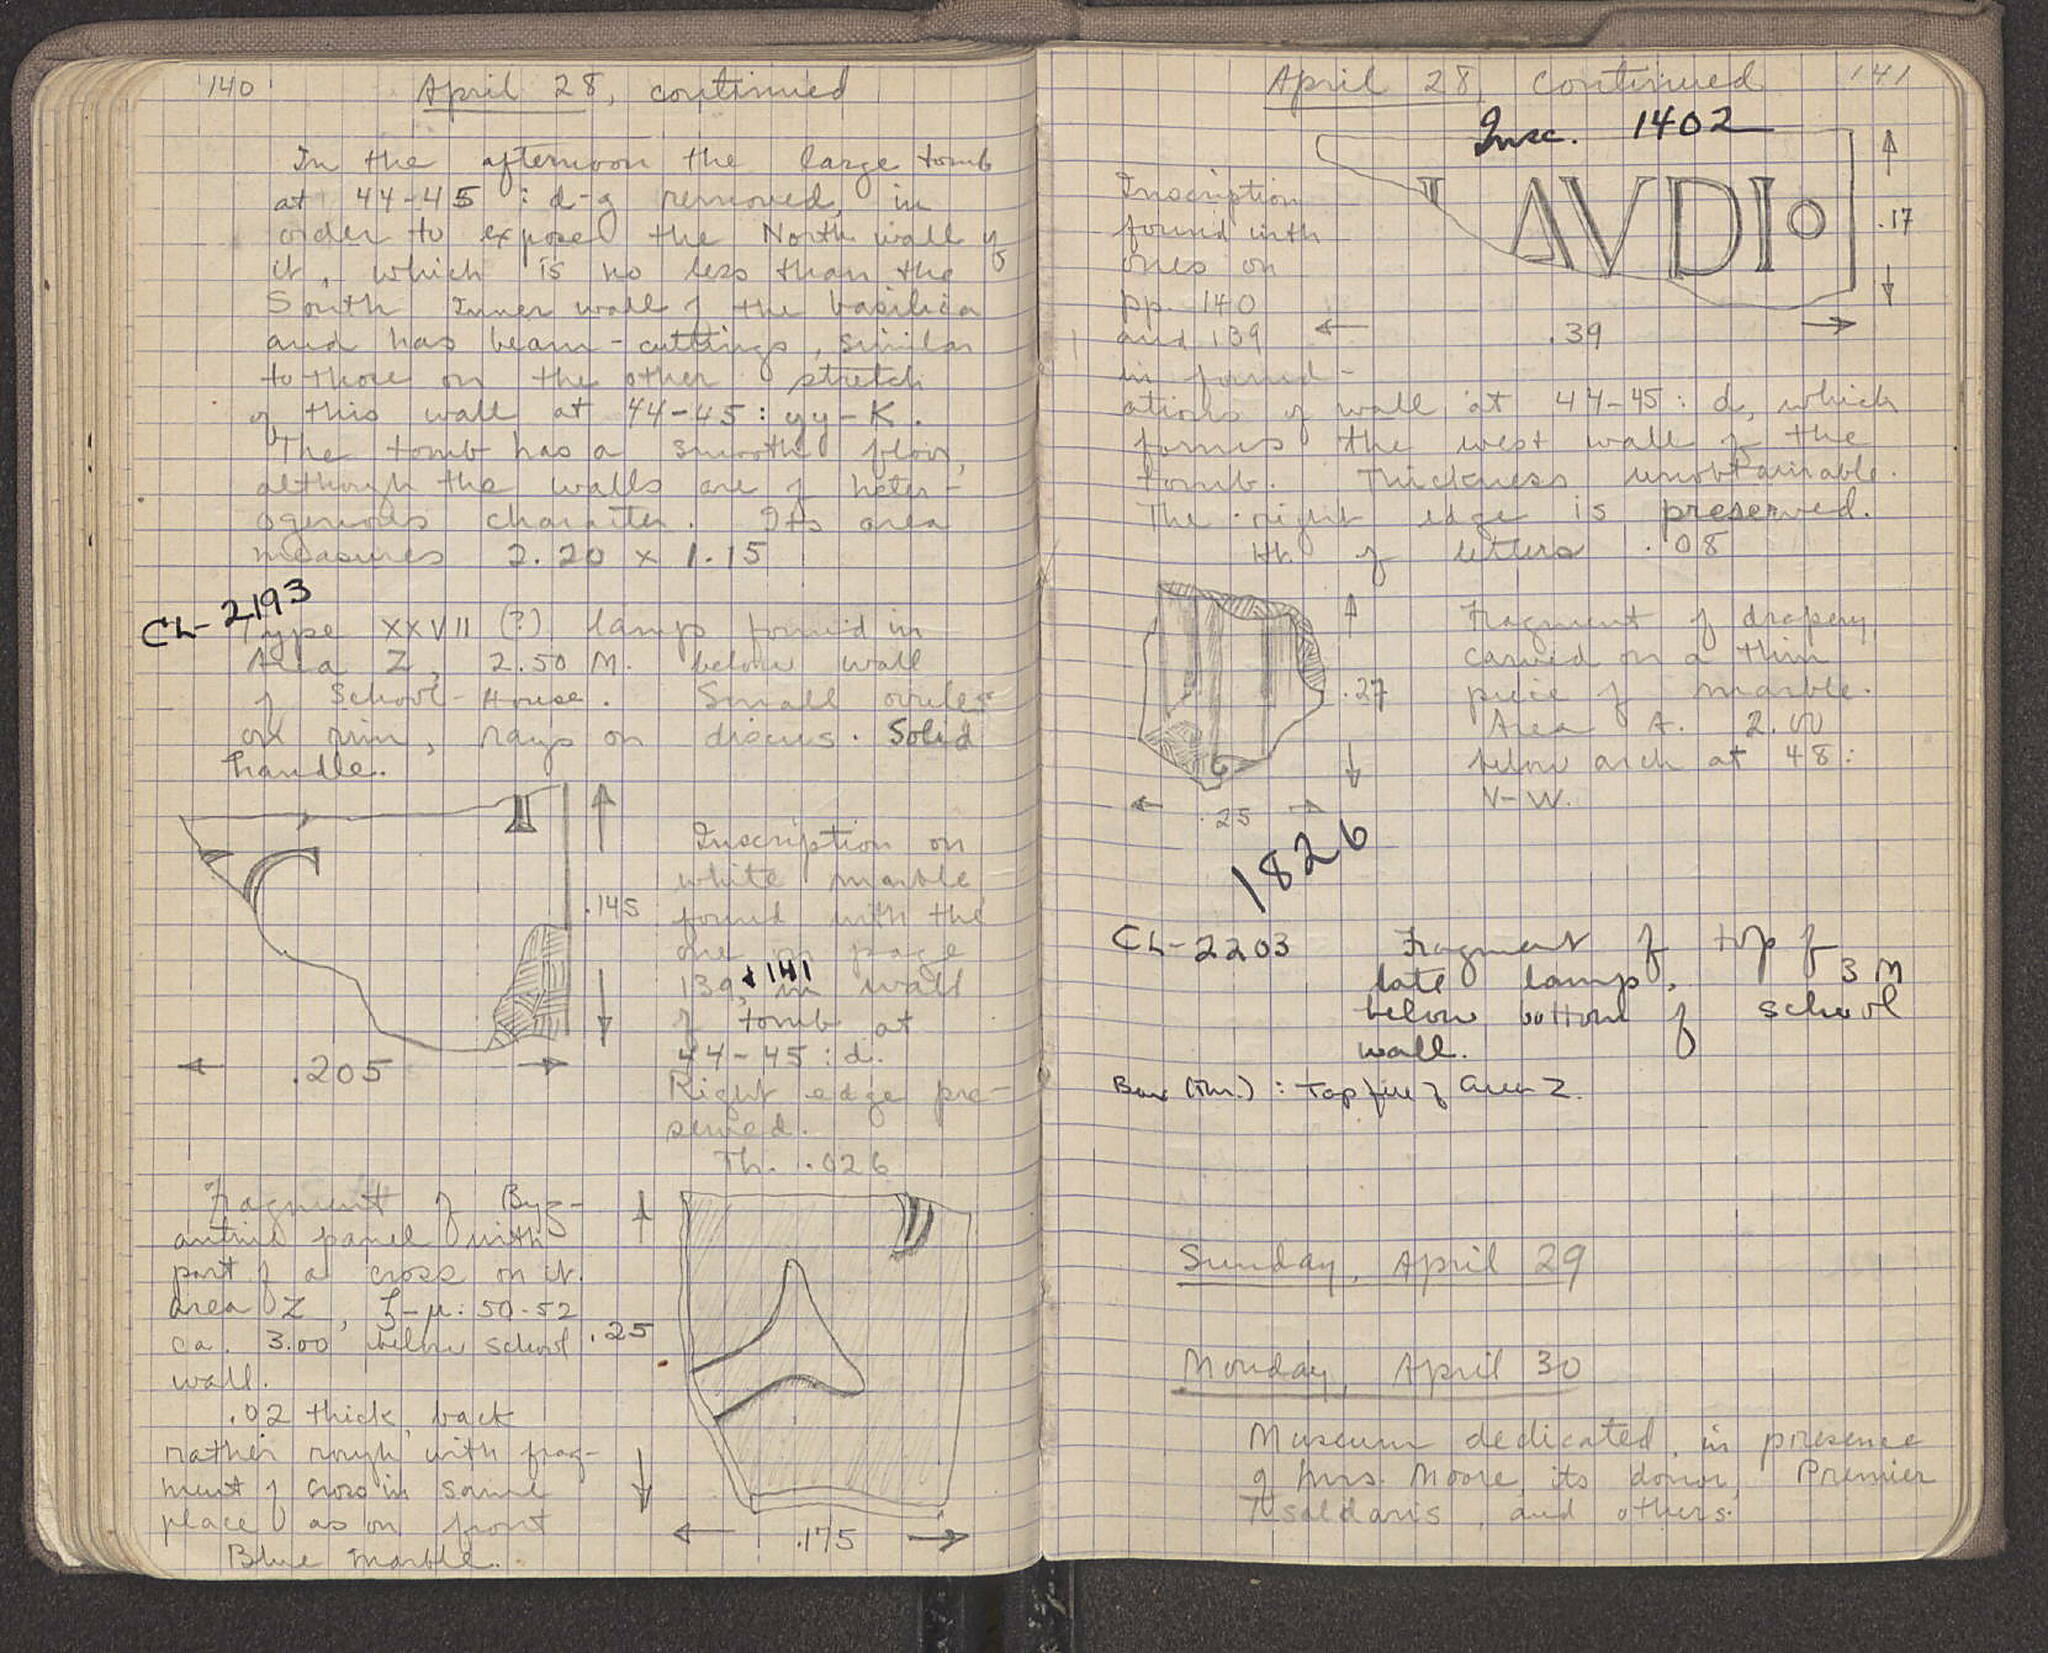 140
April 28, continued
In the afternoon the large tomb
at 44-45 : d-g removed, in
order to expose the North wall of
it, which is no less than the
South Inner wall of the basilica
and has beam-cuttings, similar
to those on the other stretch
of this wall at 44-45: yy-K.
The tomb has a smooth floor,
although the walls are of heter-
ogenious character. Its area
measures 2.20 x 1.15
CL-2193
Type XXVII (?) lamp found in
Area Z, 2.50 M. below wall
of School-House. Small circles
on rim, rays on discus. Solid
handle.
I
C
.145
.205
Inscription on
white marble
found with the
one on page
139, + 141 in wall
of tomb at
44-45 : d.
Right edge pre-
served.
Th. .026
Fragment of Byz-
antine panel with
part of a cross on it.
area Z, ξ-μ: 50-52
ca. 3.00 below school
wall.
.02 thick, back
rather rough with frag-
ment of cross in same
place as on front
Blue marble.
.25
.175
141
April 28, continued
Insc. 1402
I AVDIO
.17
.39
Inscription
found with
ones on
pp. 140
and 139
in found-
ations of wall at 44-45: d, which
forms the west wall of the
tomb. Thickness unobtainable.
The right edge is preserved.
Ht. of letters .08
.27
.25
Fragment of drapery
carved on a thin
piece of marble.
Area A. 2.00
below arch at 48:
V-W.
1826
CL-2203 Fragment of top of
late lamp. 3 M
below bottom of school
wall.
Box (Thr.) : Top fill of Area Z.
Sunday, April 29
Monday, April 30
Museum dedicated, in presence
of Mrs. Moore, its donor, Premier
Tsaldaris, and others.